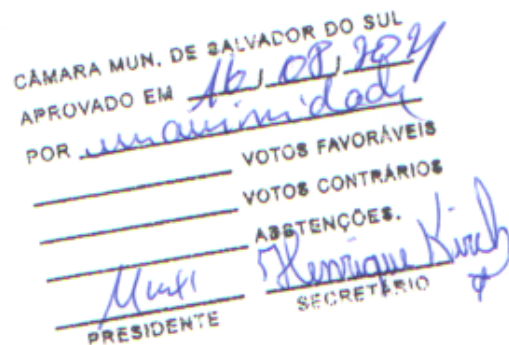 CÂMARA MUN. DE SALVADOR DO SUL
APROVADO EM 16/08/2021
POR unanimidade
VOTOS FAVORÁVEIS
VOTOS CONTRÁRIOS
ABSTENÇÕES.
Henrique Kirch
PRESIDENTE SECRETÁRIO